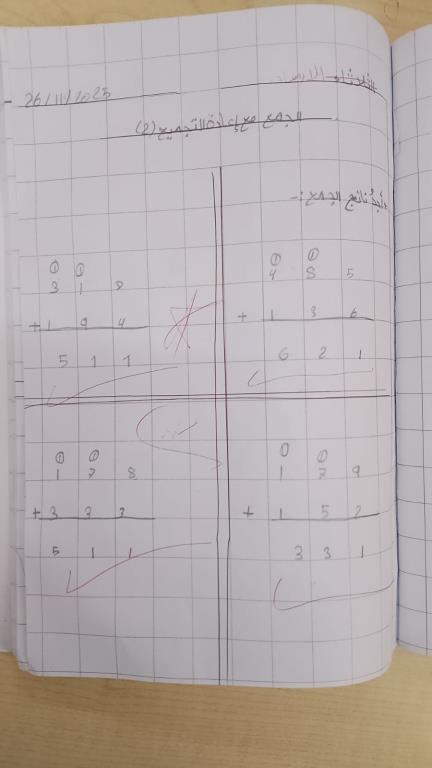 26/11/2025
الجمع مع إعادة التجميع (2)
أجد ناتج الجمع :-
① ①
4 8 5
+ 1 3 6
6 2 1
① ①
3 1 7
+ 1 9 4
5 1 1
① ①
1 7 9
+ 1 5 2
3 3 1
① ①
1 7 8
+ 3 3 3
5 1 1